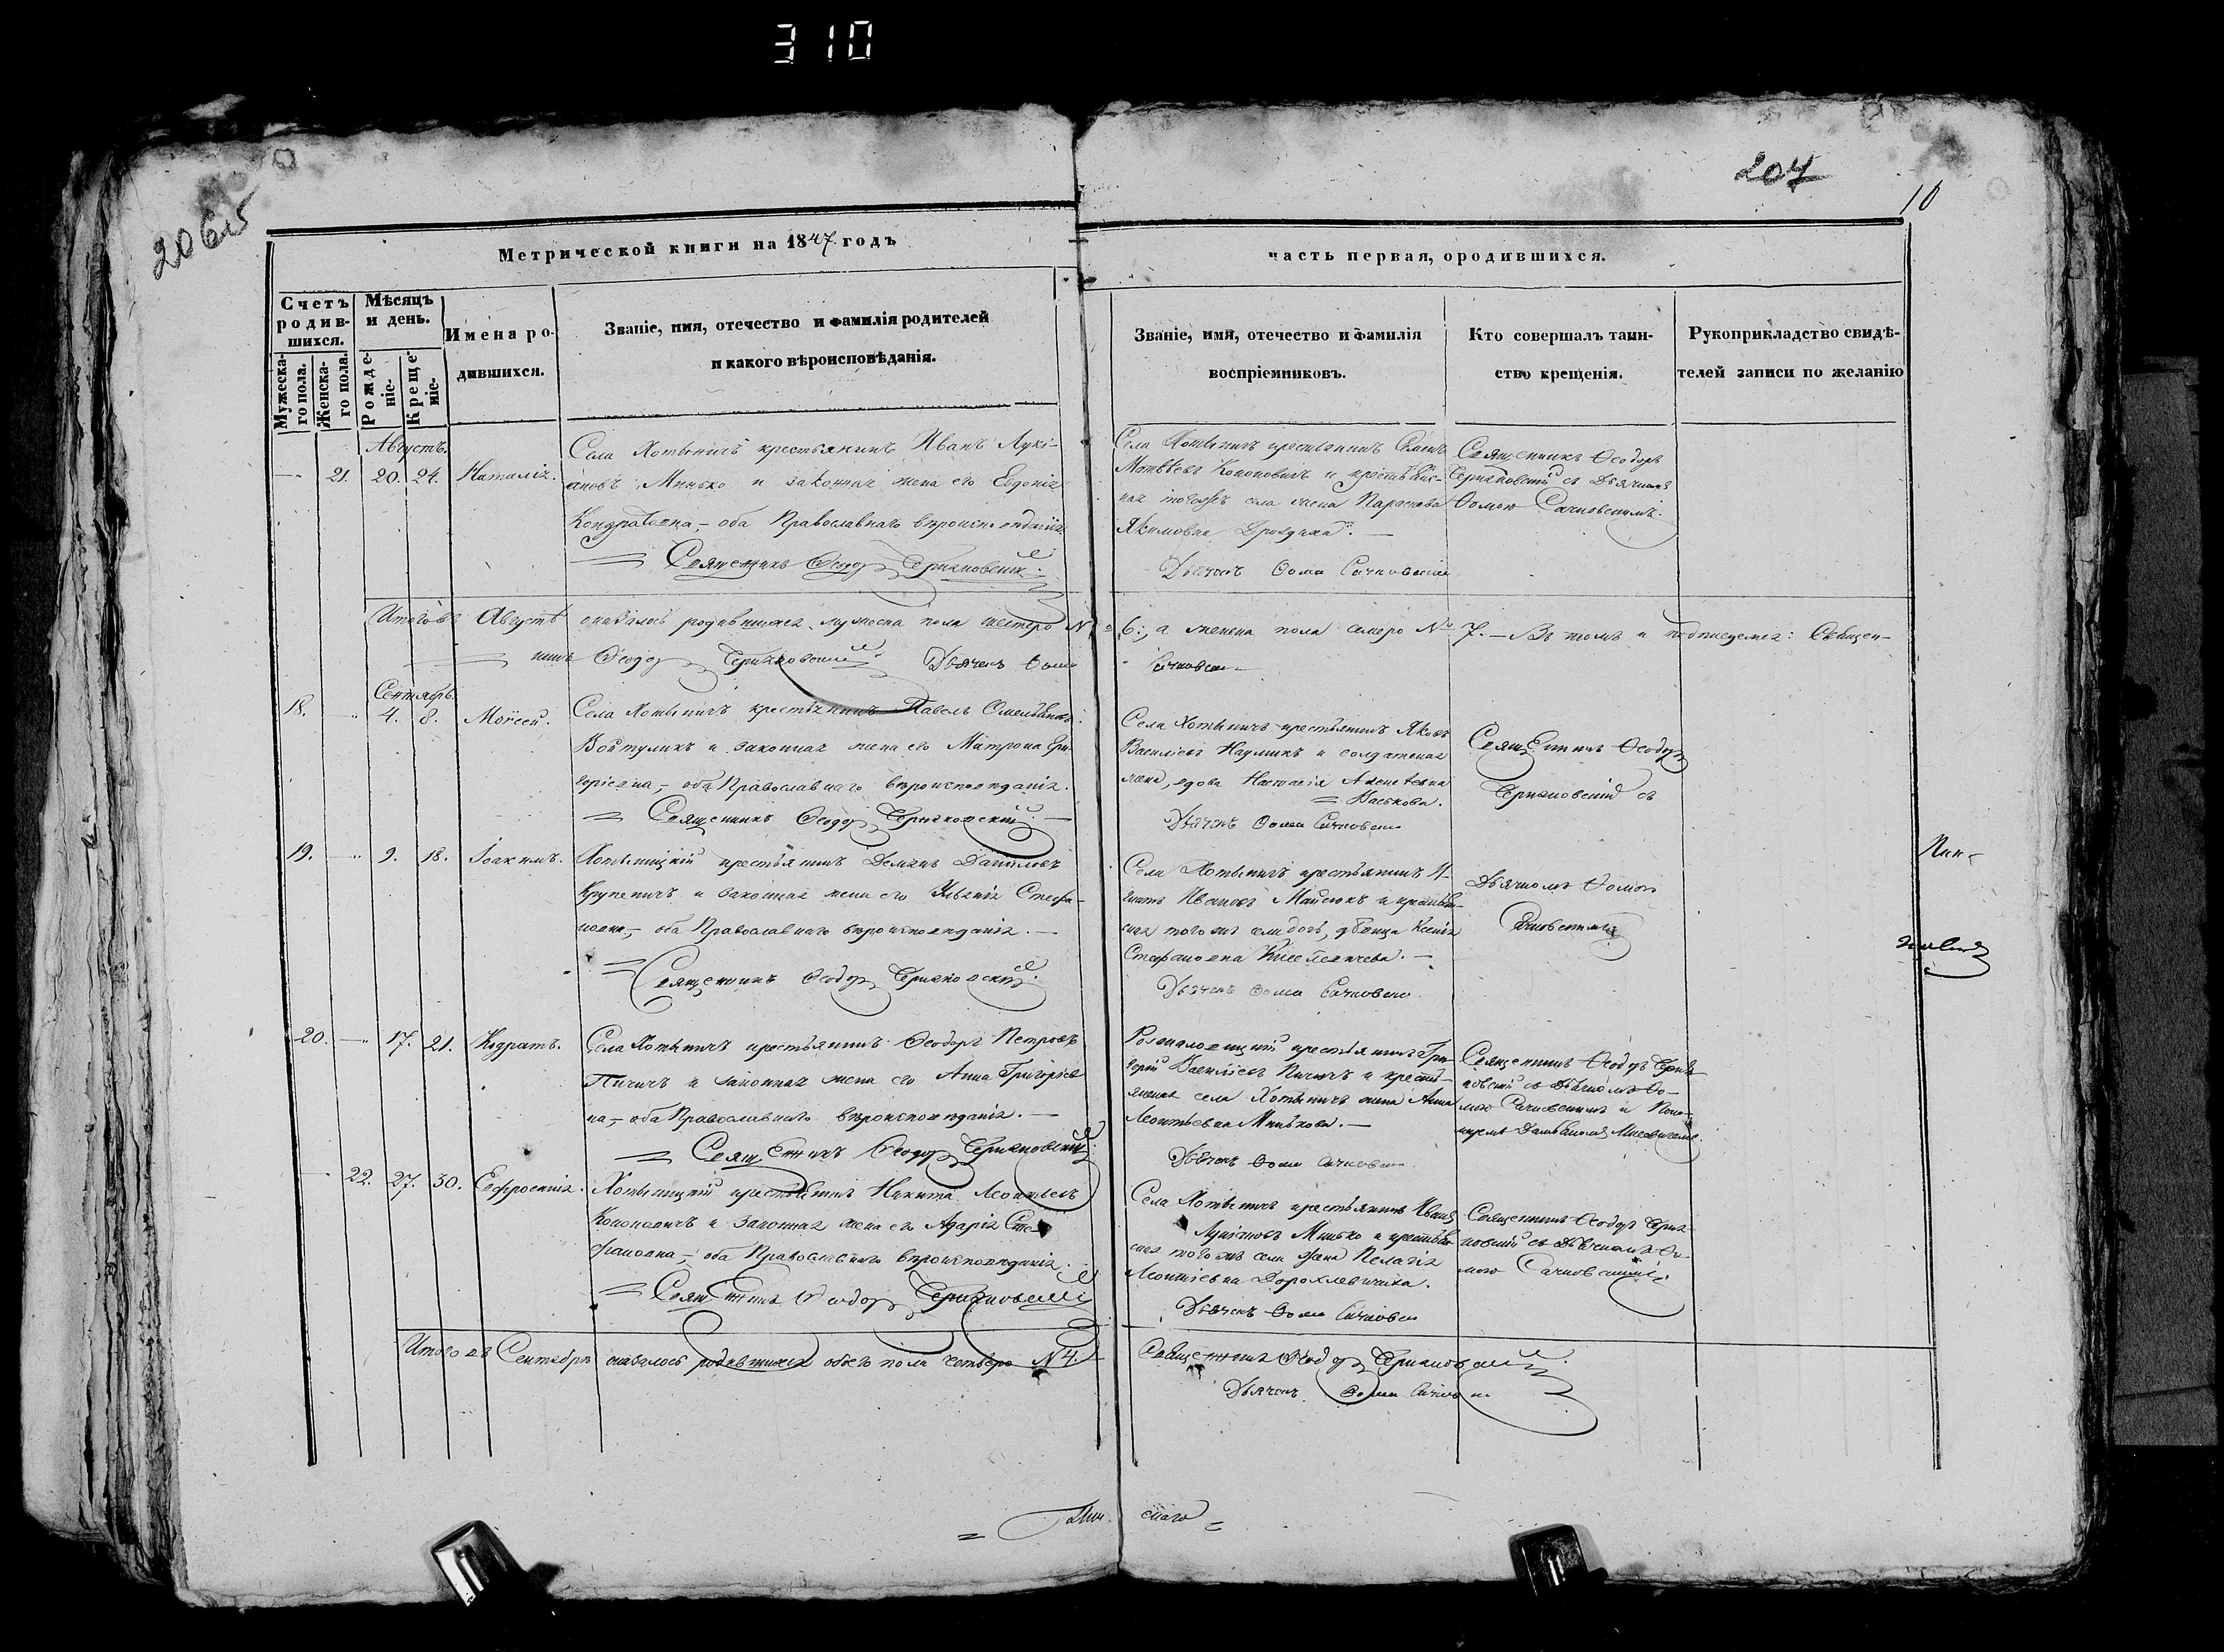 310
206об
207
10
Метрической книги на 1847 годъ
часть первая, ородившихся.
Счетъ родив-шихся.
Мужеска-го пола.
Женска-го пола.
Мѣсяцъ и день.
Рожде-ніе.
Креще-ніе.
Имена ро-
дившихся.
Званіе, имя, отечество и фамилія родителей
и какого вѣроисповѣданія.
Званіе, имя, отечество и фамилія
воспріемниковъ.
Кто совершалъ таин-
ство крещенія.
Рукоприкладство свидѣ-
телей записи по желанію
Августъ.
21. 20. 24. Наталія.
Села Хотыничъ крестьянинъ Иванъ Лукі-
ановъ Минько и законная жена его Евдокія
Кондратовна, – оба Православнаго вѣроисповѣданія.
Священникъ Ѳеодоръ
Села Хотыничъ крестьянинъ Семенъ
Матвѣевъ Кононовичъ и крестьянс-
кая тогожъ села жена Параскева
Якимовна
Дьячекъ Ѳома
Священникъ Ѳеодоръ
съ Дьячкомъ
Ѳомою
Итого въ Августѣ оказалось родившихся мужеска пола шестеро №
6:, а женска пола семеро № 7. – Въ томъ и подписуемся: Священ-
никъ Ѳеодоръ Дьячекъ Ѳома
Сентябрь.
18. 4. 8. Моѵсей.
Села Хотыничъ крестьянинъ Павелъ Омельяновъ
Войтуликъ и законная жена его Матрона Гри-
горіевна, – оба Православнаго вѣроисповѣданія.
Священникъ Ѳеодоръ
Села Хотыничъ крестьянинъ Яковъ
Василіевъ Наумикъ и солдатская
жена, вдова Настасія
Васькова.
Дьячекъ Ѳома
Священникъ Ѳеодоръ
съ
19. 9. 18. Іоакимъ.
Хотыницкій крестьянинъ Демянъ Даниловъ
Крупеничъ и законная жена его Стефа-
новна, – оба Православнаго вѣроисповѣданія. –
Священникъ Ѳеодоръ
Села Хотыничъ крестьянинъ И-
гнатъ Ивановъ и крестьян-
ская тогожъ села дочь, дѣвица Ксенія
Стефановна
Дьячекъ Ѳома
Дьячкомъ Ѳомою
Пин-
20. 17. 21. Кодратъ.
Села Хотыничъ крестьянинъ Ѳеодоръ Петровъ
Пичичъ и законная жена его Анна Григоріев-
на, – оба Православнаго вѣроисповѣданія. –
Священникъ Ѳеодоръ
крестьянинъ Гри-
горій Василіевъ Пичичъ и кресть-
янская села Хотыничъ жена Анна
Леонтьевна Минькова. –
Дьячекъ Ѳома
Священникъ Ѳеодоръ
съ Дьячкомъ Ѳо-
мою и Поно-
маремъ
22. 27. 30. Ефросинія.
Хотыницкій крестьянинъ Никита Леонтьевъ
Кононовичъ и законная жена его Сте-
фановна, – оба Православнаго вѣроисповѣданія.
Священникъ Ѳеодоръ
Села Хотыничъ крестьянинъ Иванъ
Лукіановъ Минько и крестьян-
ская тогожъ села жена Пелагія
Леонтіевна
Дьячекъ Ѳома
Священникъ Ѳеодоръ
съ Дьячкомъ Ѳо-
мою
Итого въ Сентябрѣ оказалось родившихся обоего пола четверо № 4.
Священникъ Ѳеодоръ
Дьячекъ Ѳома
скаго